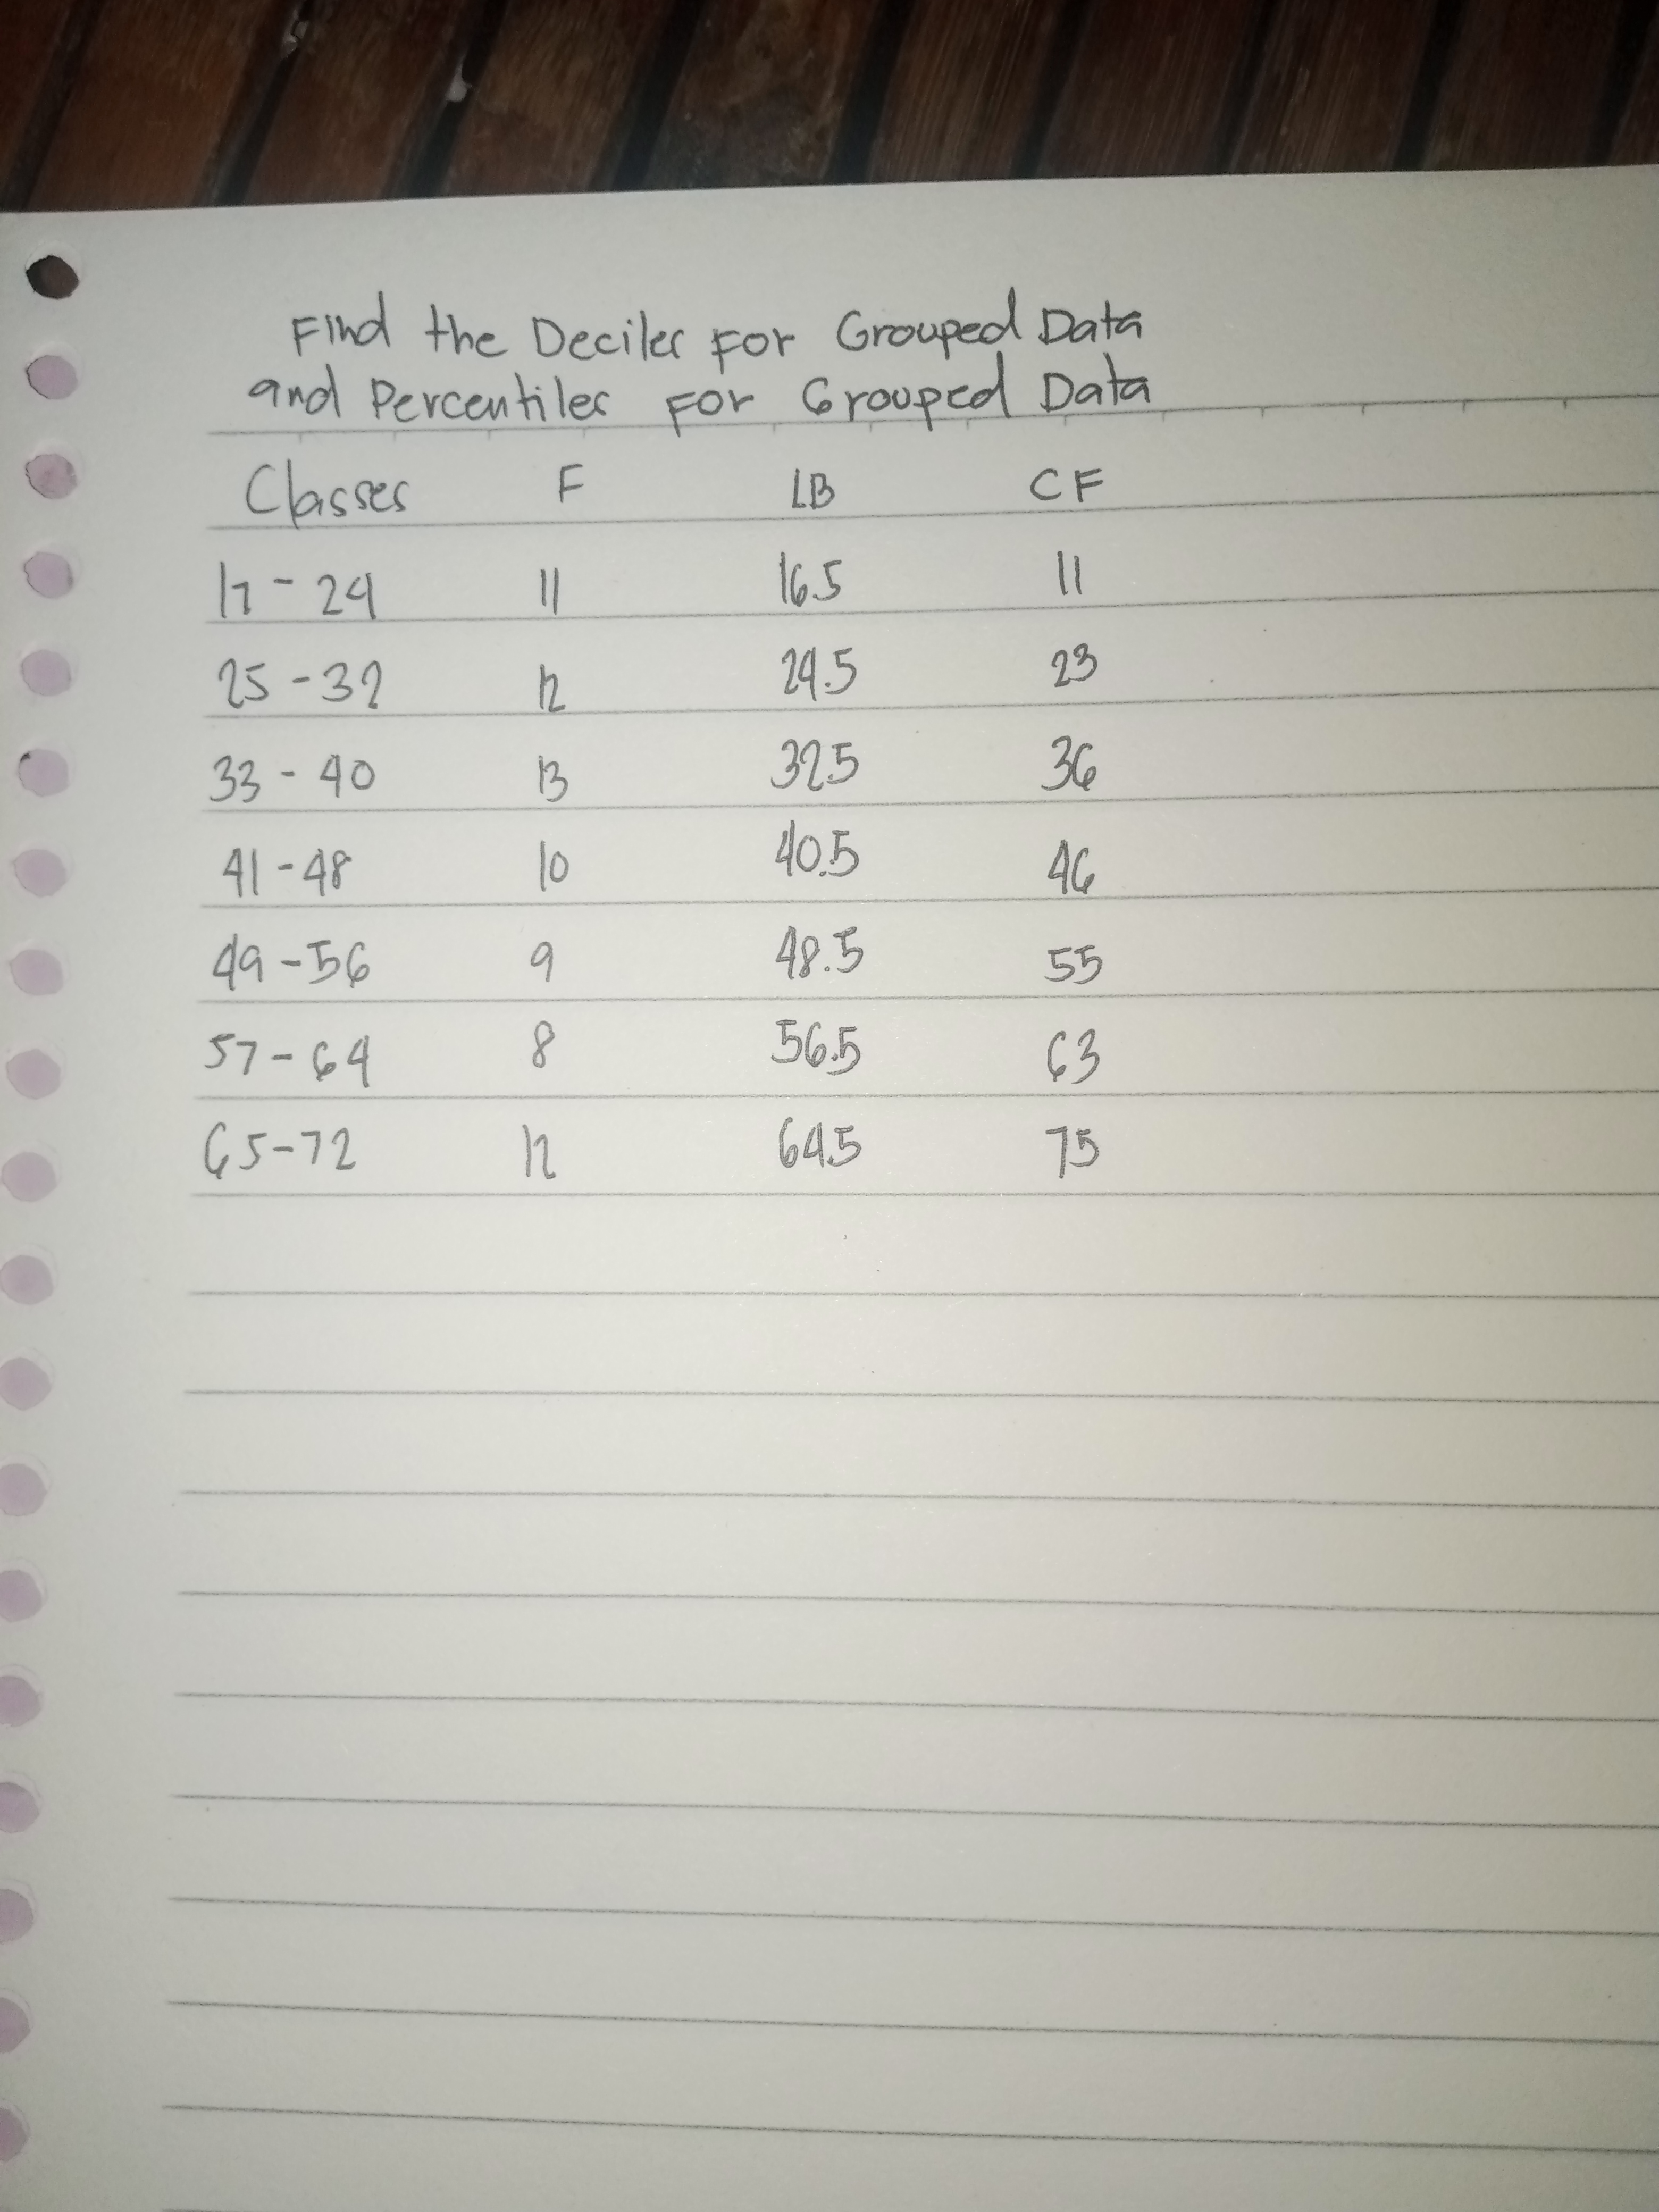 Find the Deciles For Grouped Data
and Percentiles For Grouped Data
Classes F LB CF
17 - 24 11 16.5 11
25 - 32 12 24.5 23
33 - 40 13 32.5 36
41 - 48 10 40.5 46
49 - 56 9 48.5 55
57 - 64 8 56.5 63
65 - 72 12 64.5 75